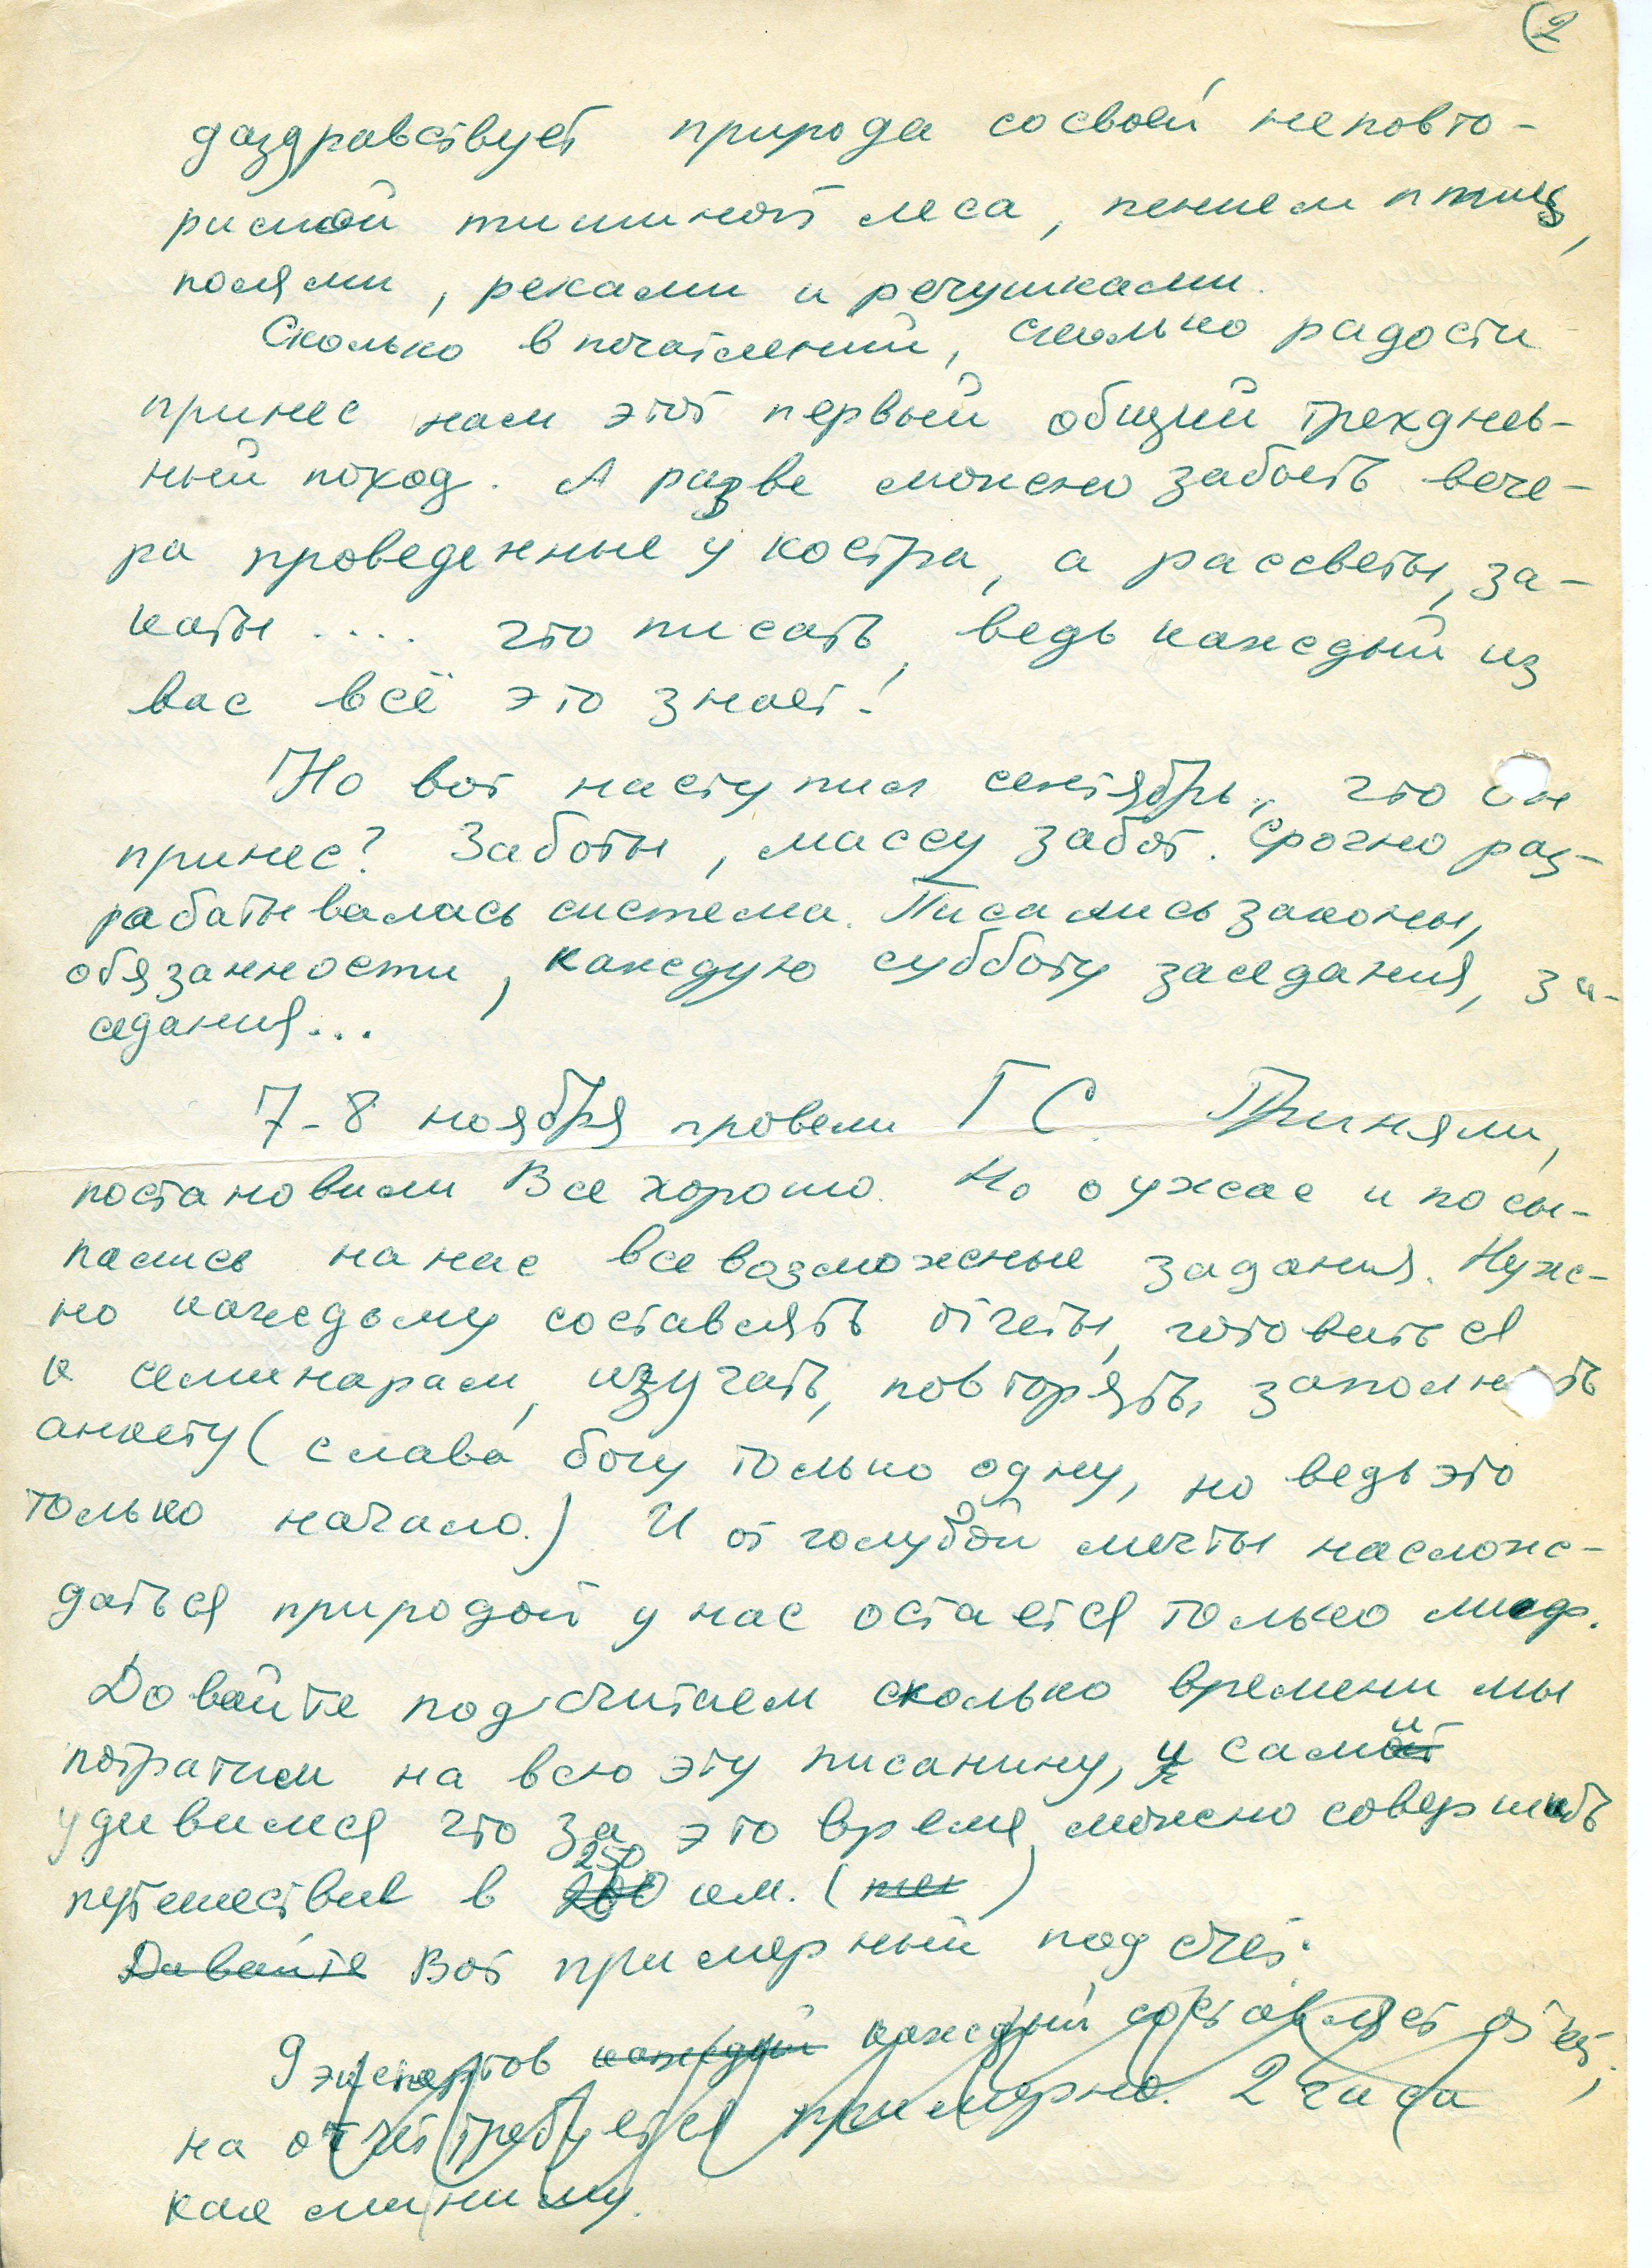 (2
даздравствует природа со своей неповто-
римой тишиной леса, пением птиц,
полями, реками и речушками.
Сколько впечатлений, сколько радости
принес нам этот первый общий трехднев-
ный поход. А разве можно забыть вече-
ра проведенные у костра, а рассветы, за-
каты .... что писать, ведь каждый из
вас всё это знает!
Но вот наступил сентябрь, что он
принес? Заботы, массу забот. Срочно раз-
рабатывалась система. Писались законы,
обязанности, каждую субботу заседания, за-
седания...
7-8 ноября провели ГС. Приняли,
постановили Все хорошо. Но о ужас и посы-
пались на нас всевозможные задания. Нуж-
но каждому составлять отчеты, готовиться
к семинарам, изучать, повторять, заполнять
анкету (слава богу только одну, но ведь это
только начало.) И от голубой мечты наслаж-
даться природой у нас остается только миф.
Давайте подсчитаем сколько времени мы
потратим на всю эту писанину, и сами
удивимся что за это время можно совершить
250
путешествие в 200 км. ( )
Давайте Вот примерный подсчет.
9 экспертов каждый каждый составляет отчет,
на отчет требуется примерно 2 часа
как минимум.